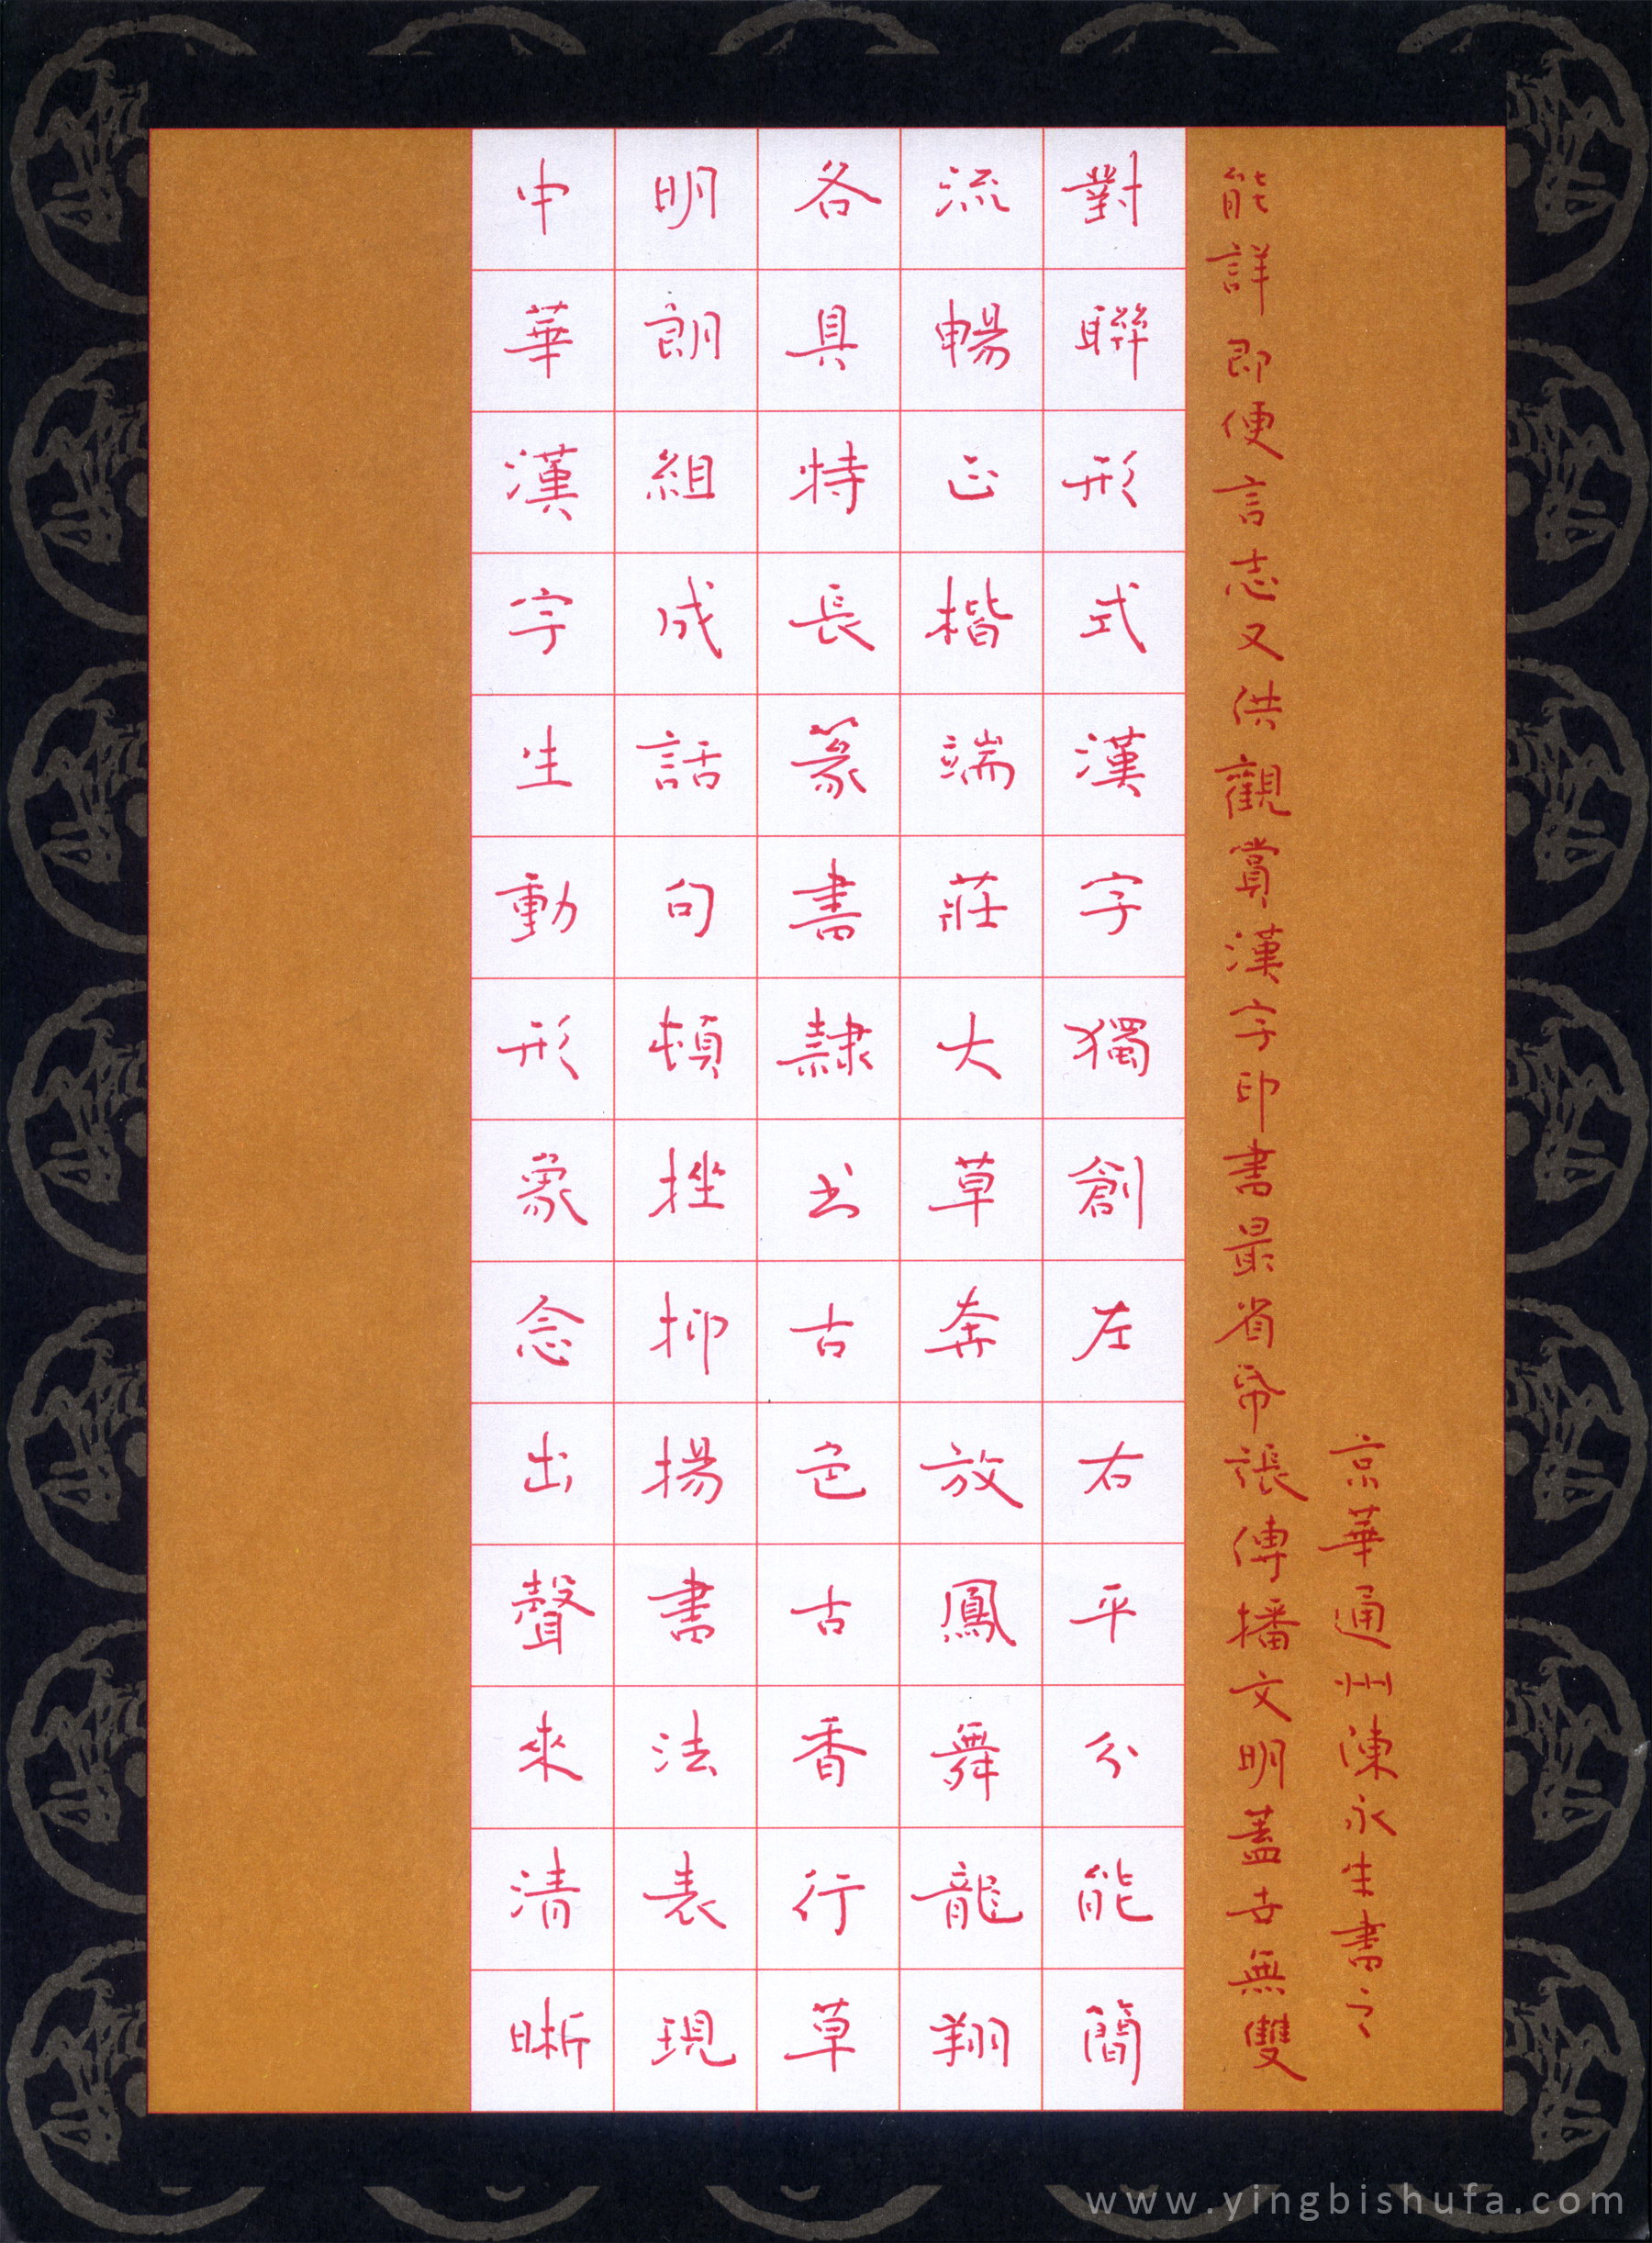 中華漢字生動形象念出聲來清晰
明朗組成話句頓挫抑揚書法表現
各具特長篆書隸书古色古香行草
流暢正楷端莊大草奔放鳳舞龍翔
對聯形式漢字獨創左右平分能簡
能詳即便言志又供觀賞漢字印書最省帋張傳播文明蓋古無雙
京華通州陳永生書之
www.yingbishufa.com